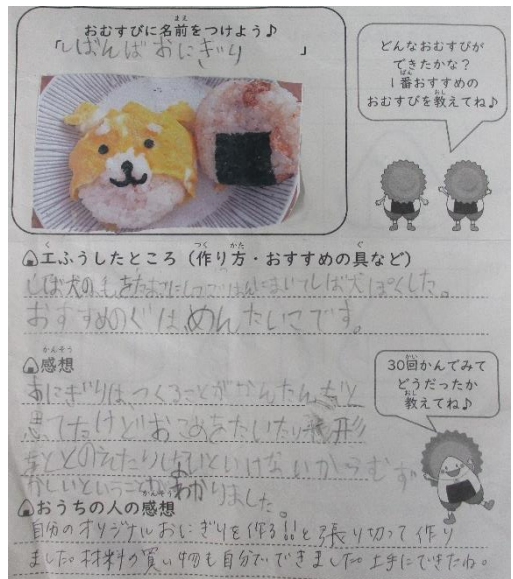 おむすびに名前をつけよう♪
「しばんばおにぎり」
どんなおむすびが
できたかな？
1番おすすめの
おむすびを教えてね♪
工ふうしたところ（作り方・おすすめの具など）
しば犬の毛をたまごにしてごはんにまいてしば犬ぽくした。
おすすめのぐは、めんたいこです。
感想
30回かんでみて
どうだったか
教えてね♪
おにぎりは、つくることがかんたんだと
思てたけどおこめをたいたり形
をととのえたりしないといけないからむず
かしいということがわかりました。
おうちの人の感想
自分のオリジナルおにぎりを作る!!と張り切って作り
ました。材料の買い物も自分でできました。上手にできたね。